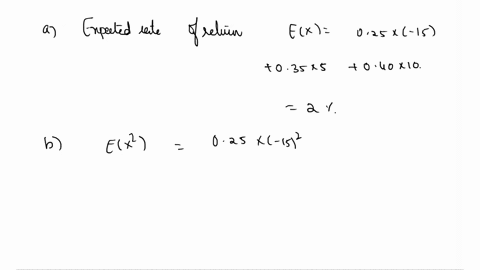 a) Expected rate of return E(x) = 0.25 x (-15)
+0.35 x 5 + 0.40 x 10.
= 2 %.
b) E(x²) = 0.25 x (-15)²